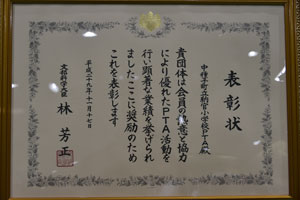 表彰状
中種子町立納官小学校PTA殿
貴団体は会員の熱意と協力
により優れたPTA活動を
行い顕著な業績を挙げられ
ましたここに奨励のため
これを表彰します
平成二十九年十一月十七日
文部科学大臣
林 芳正